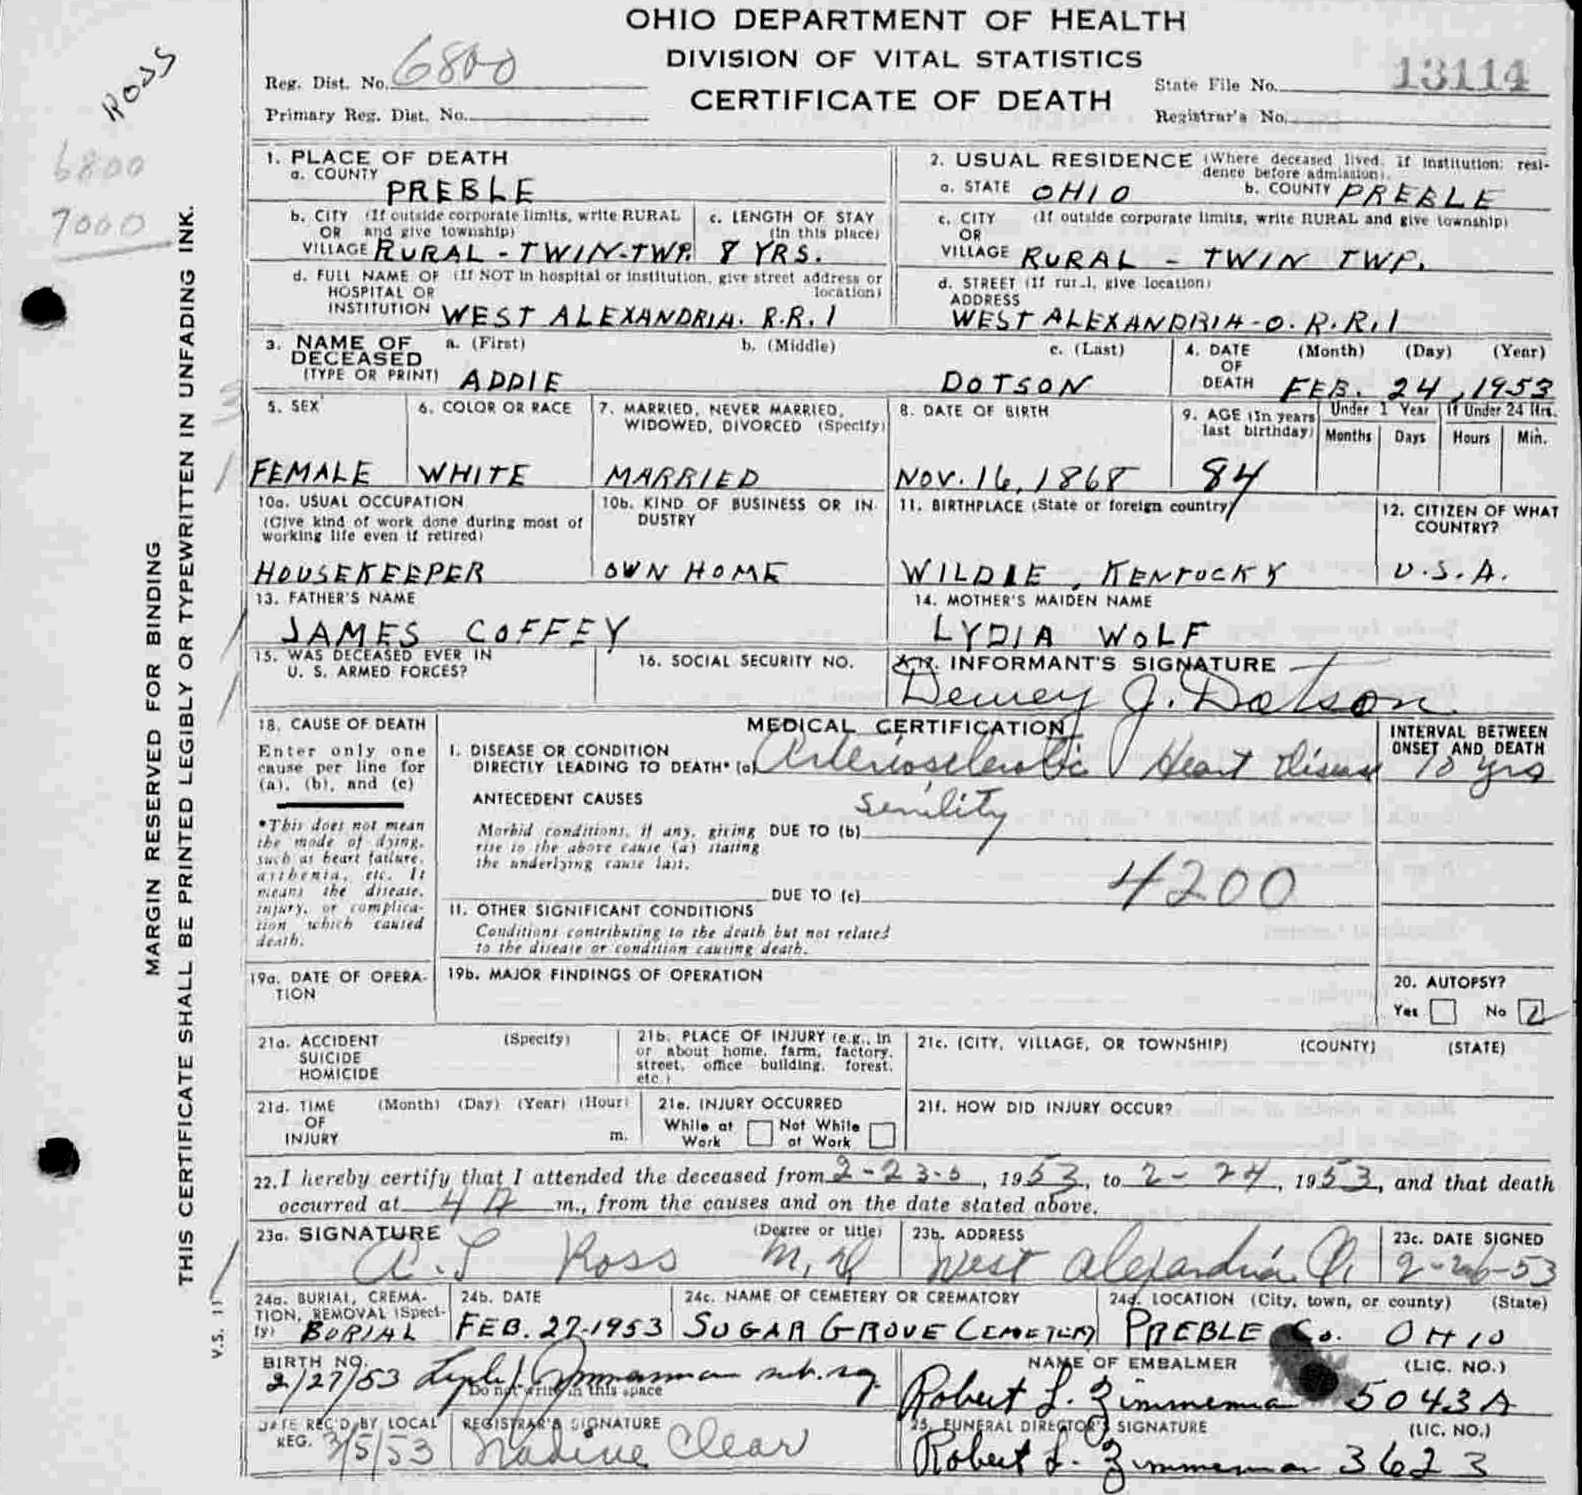 OHIO DEPARTMENT OF HEALTH
DIVISION OF VITAL STATISTICS
CERTIFICATE OF DEATH
Reg. Dist. No. 6800
Primary Reg. Dist. No.
State File No. 13114
Registrar's No.
ROSS
6800
7000
MARGIN RESERVED FOR BINDING
THIS CERTIFICATE SHALL BE PRINTED LEGIBLY OR TYPEWRITTEN IN UNFADING INK.
V.S. 11
1. PLACE OF DEATH
a. COUNTY PREBLE
2. USUAL RESIDENCE (Where deceased lived. If institution: resi-
dence before admission).
a. STATE OHIO b. COUNTY PREBLE
b. CITY (If outside corporate limits, write RURAL
OR and give township)
VILLAGE RURAL - TWIN-TWP.
c. LENGTH OF STAY
(in this place)
8 YRS.
c. CITY (If outside corporate limits, write RURAL and give township)
OR
VILLAGE RURAL - TWIN TWP.
d. FULL NAME OF (If NOT in hospital or institution, give street address or
HOSPITAL OR location)
INSTITUTION WEST ALEXANDRIA. R.R.1
d. STREET (If rural, give location)
ADDRESS
WEST ALEXANDRIA-O. R.R.1
3. NAME OF a. (First) b. (Middle) c. (Last)
DECEASED
(TYPE OR PRINT) ADDIE DOTSON
4. DATE (Month) (Day) (Year)
OF
DEATH FEB. 24, 1953
5. SEX
FEMALE
6. COLOR OR RACE
WHITE
7. MARRIED, NEVER MARRIED,
WIDOWED, DIVORCED (Specify)
MARRIED
8. DATE OF BIRTH
NOV. 16, 1868
9. AGE (In years
last birthday)
84
Under 1 Year
Months Days
If Under 24 Hrs.
Hours Min.
10a. USUAL OCCUPATION
(Give kind of work done during most of
working life even if retired)
HOUSEKEEPER
10b. KIND OF BUSINESS OR IN-
DUSTRY
OWN HOME
11. BIRTHPLACE (State or foreign country)
WILDIE, KENTUCKY
12. CITIZEN OF WHAT
COUNTRY?
U.S.A.
13. FATHER'S NAME
JAMES COFFEY
14. MOTHER'S MAIDEN NAME
LYDIA WOLF
15. WAS DECEASED EVER IN
U. S. ARMED FORCES?
16. SOCIAL SECURITY NO.
INFORMANT'S SIGNATURE
Dewey J. Dotson
18. CAUSE OF DEATH
Enter only one
cause per line for
(a), (b), and (c)
*This does not mean
the mode of dying,
such as heart failure,
asthenia, etc. It
means the disease,
injury, or complica-
tion which caused
death.
MEDICAL CERTIFICATION
INTERVAL BETWEEN
ONSET AND DEATH
I. DISEASE OR CONDITION
DIRECTLY LEADING TO DEATH* (a) Arteriosclerotic Heart Disease 10 yrs
ANTECEDENT CAUSES
Morbid conditions, if any, giving DUE TO (b) senility
rise to the above cause (a) stating
the underlying cause last.
DUE TO (c) 4200
II. OTHER SIGNIFICANT CONDITIONS
Conditions contributing to the death but not related
to the disease or condition causing death.
19a. DATE OF OPERA-
TION
19b. MAJOR FINDINGS OF OPERATION
20. AUTOPSY?
Yes No
21a. ACCIDENT (Specify)
SUICIDE
HOMICIDE
21b. PLACE OF INJURY (e.g., in
or about home, farm, factory,
street, office building, forest,
etc.)
21c. (CITY, VILLAGE, OR TOWNSHIP) (COUNTY) (STATE)
21d. TIME (Month) (Day) (Year) (Hour)
OF
INJURY m.
21e. INJURY OCCURRED
While at Not While
Work at Work
21f. HOW DID INJURY OCCUR?
22. I hereby certify that I attended the deceased from 2-23-5, 1953, to 2-24, 1953, and that death
occurred at 4 A m., from the causes and on the date stated above.
23a. SIGNATURE (Degree or title)
Ross M.D
23b. ADDRESS
West Alexandria O.
23c. DATE SIGNED
2-26-53
24a. BURIAL, CREMA-
TION, REMOVAL (Speci-
fy) BURIAL
24b. DATE
FEB. 27-1953
24c. NAME OF CEMETERY OR CREMATORY
SUGAR GROVE CEMETERY
24d. LOCATION (City, town, or county) (State)
PREBLE Co. OHIO
BIRTH NO.
2/27/53 Zimmerman sub. reg.
Do not write in this space
NAME OF EMBALMER (LIC. NO.)
Robert L. Zimmerman 5043A
DATE REC'D BY LOCAL
REG. 3/5/53
REGISTRAR'S SIGNATURE
Nadine Clear
25. FUNERAL DIRECTOR'S SIGNATURE (LIC. NO.)
Robert L. Zimmerman 3623